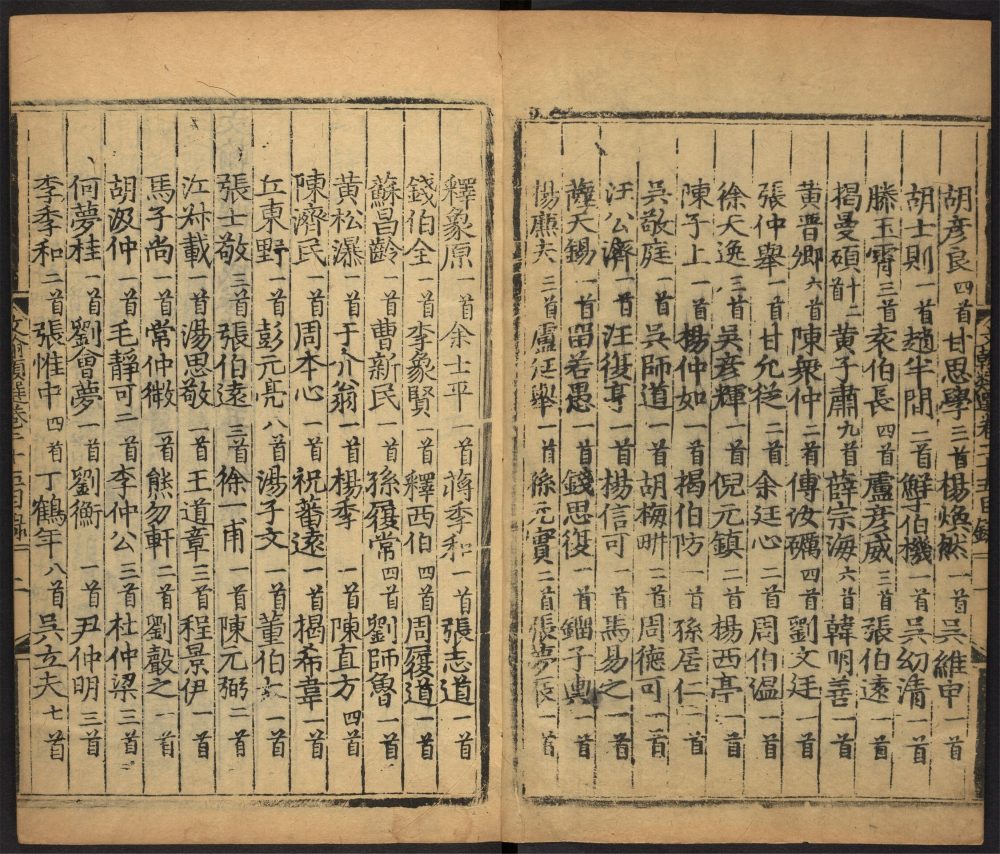 胡彦良四首甘思學二首楊煥然一首吳維申一首
胡士則一首趙半閒二首鮮伯機一首吳幼清一首
滕玉霄三首袁伯長四首盧彦威三首張伯遠一首
揭曼碩十二首黃子肅九首薛宗海六首韓明善一首
黃晉卿六首陳衆仲二首傅汝礪四首劉文廷一首
張仲舉一首甘允从二首余廷心二首周伯温一首
徐天逸三首吳彦輝一首倪元鎮一首楊西亭一首
陳子上一首楊仲如一首揭伯防一首孫居仁一首
吳敬庭一首吳師道一首胡梅畊一首周德可一首
汪公濟一首汪復亨一首楊信可一首馬易之一首
薩天錫一首留若愚一首錢思復一首鎦子輿一首
楊廉夫三首盧廷舉一首徐元實二首張夢辰一首
釋象原一首余士平一首蔣季和一首張志道一首
錢伯全一首李象賢一首釋西伯四首周履道一首
蘇昌齡一首曹新民一首孫履常四首劉師魯一首
黃松瀑一首于介翁一首楊季一首陳直方四首
陳濟民一首周本心一首祝蕃遠一首揭希韋一首
丘東野一首彭元亮八首湯子文一首董伯一首
張士敬三首張伯遠三首徐一甫一首陳元弼二首
江叔載一首湯思敬一首王道章三首程景伊一首
馬子尚一首常仲微一首熊勿軒二首劉縠之一首
胡汲仲一首毛靜可二首李仲公三首杜仲梁一首
何夢桂一首劉會夢一首劉衡一首尹仲明三首
李季和二首張惟中四首丁鶴年八首吳立夫七首